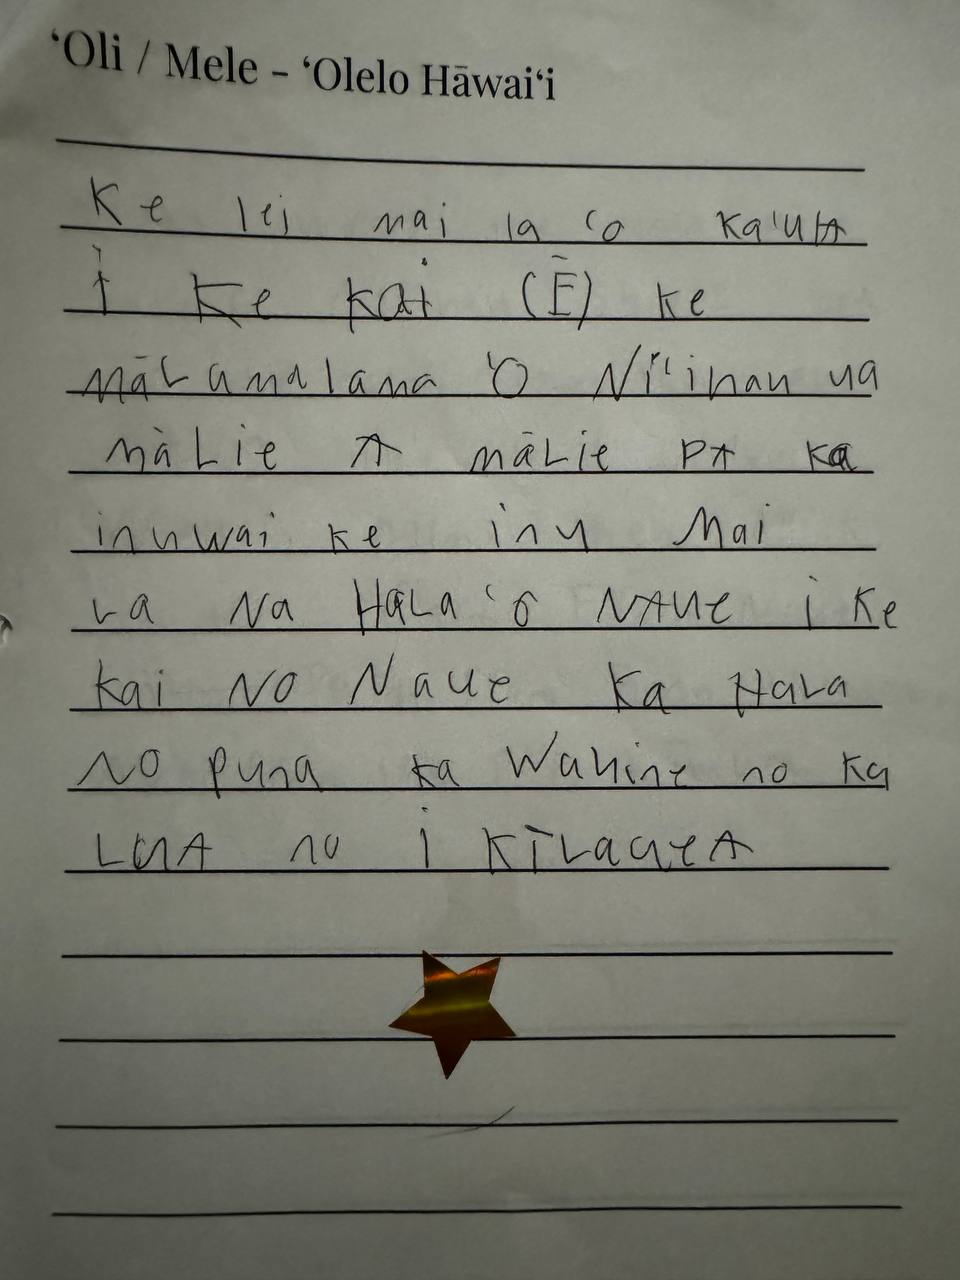 ʻOli / Mele - ʻOlelo Hāwaiʻi
Ke lei mai la ʻo KaʻulA
i Ke kai (Ē) ke
māLamalama ʻO Niʻihau ua
māLie A māLie PA ka
inuwai ke inu Mai
La Na HaLa ʻo NAue i Ke
kai NO Naue Ka HaLa
NO puna ka Wahine no ka
LuA no i KīLaueA